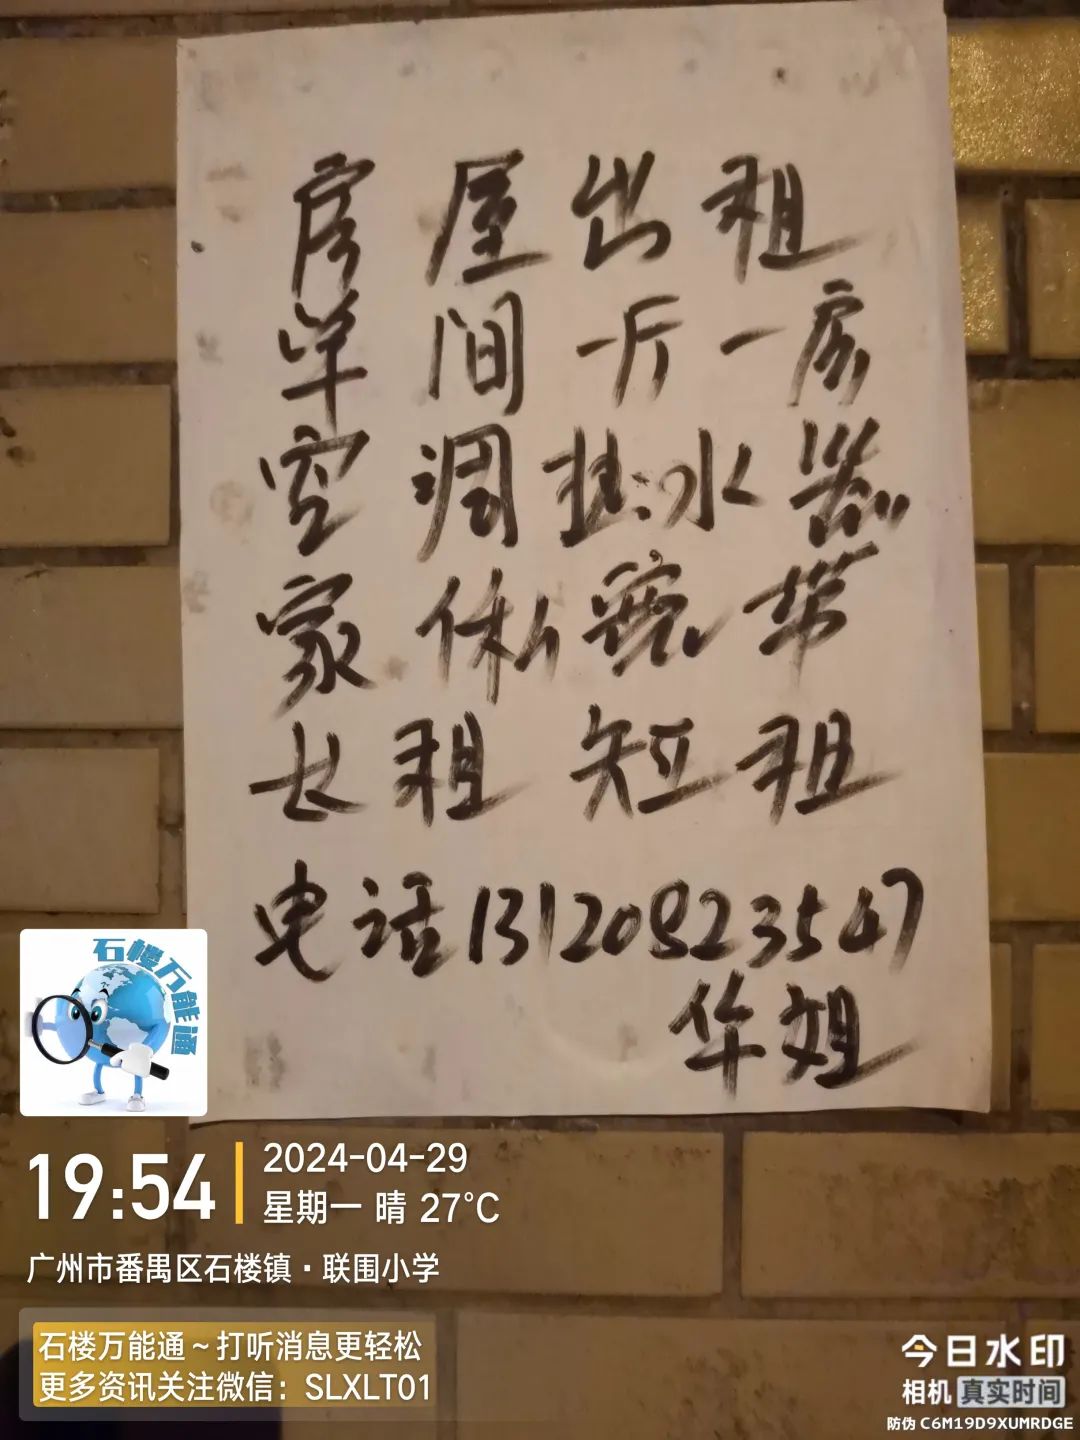 房屋出租
单间一厅一房
空调热水器
家俬宽带
长租短租
电话13120823547
华姐
石楼万能通
19:54
2024-04-29
星期一 晴 27℃
广州市番禺区石楼镇·联围小学
石楼万能通~打听消息更轻松
更多资讯关注微信：SLXLT01
今日水印
相机 真实时间
防伪 C6M19D9XUMRDGE